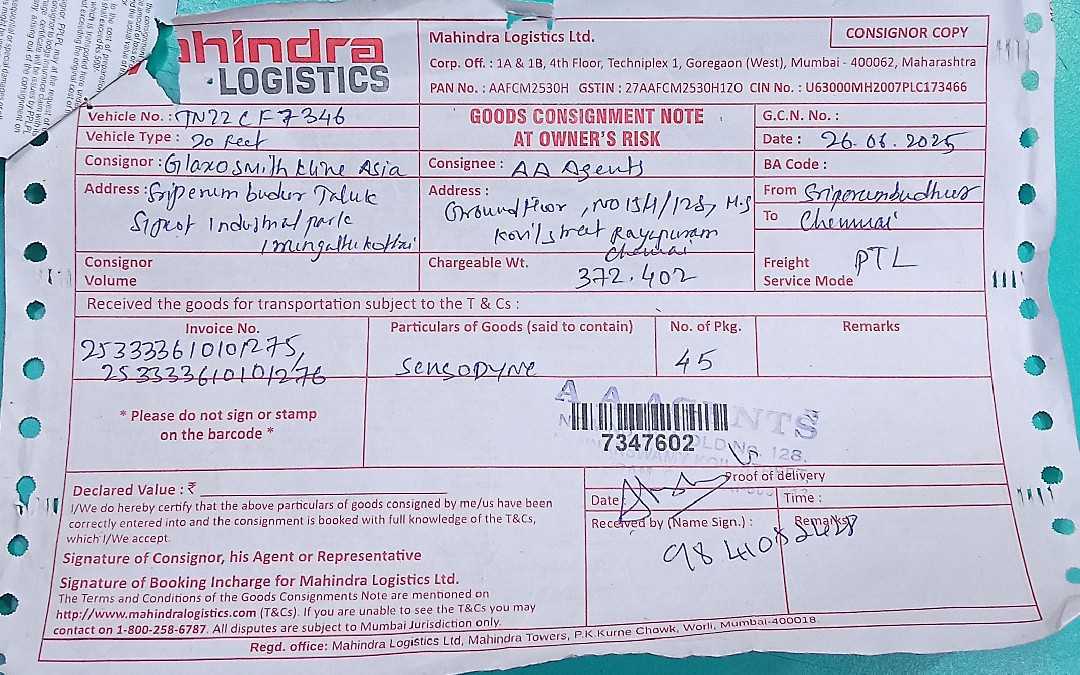 mahindra
LOGISTICS
Mahindra Logistics Ltd.
CONSIGNOR COPY
Corp. Off. : 1A & 1B, 4th Floor, Techniplex 1, Goregaon (West), Mumbai - 400062, Maharashtra
PAN No. : AAFCM2530H GSTIN : 27AAFCM2530H1ZO CIN No. : U63000MH2007PLC173466
Vehicle No. : TN22CF7346
GOODS CONSIGNMENT NOTE
AT OWNER'S RISK
G.C.N. No. :
Vehicle Type : 20 Feet
Date : 26.06.2025
Consignor : Glaxosmith kline Asia
Consignee : AA Agents
BA Code :
Address : Sriperumbudur Taluk
Sipcot Industrial park
Address : Ground floor, NO 154/128, M.S
Kovil street Rayapuram
Chennai
From Sriperumbudhur
To Chennai
Consignor
Volume
Chargeable Wt. 372.402
Freight
Service Mode PTL
Received the goods for transportation subject to the T & Cs :
Invoice No.
Particulars of Goods (said to contain)
No. of Pkg.
Remarks
253333610101275,
253333610101276
SENSODYNE
45
* Please do not sign or stamp
on the barcode *
A A AGENTS
7347602
OLD NO. 128.
Declared Value : ₹
I/We do hereby certify that the above particulars of goods consigned by me/us have been
correctly entered into and the consignment is booked with full knowledge of the T&Cs,
which I/We accept.
Signature of Consignor, his Agent or Representative
Signature of Booking Incharge for Mahindra Logistics Ltd.
The Terms and Conditions of the Goods Consignments Note are mentioned on
http://www.mahindralogistics.com (T&Cs). If you are unable to see the T&Cs you may
contact on 1-800-258-6787. All disputes are subject to Mumbai Jurisdiction only.
Proof of delivery
Date :
Time :
Received by (Name Sign.) :
Remarks
Regd. office: Mahindra Logistics Ltd, Mahindra Towers, P.K.Kurne Chowk, Worli, Mumbai-400018.